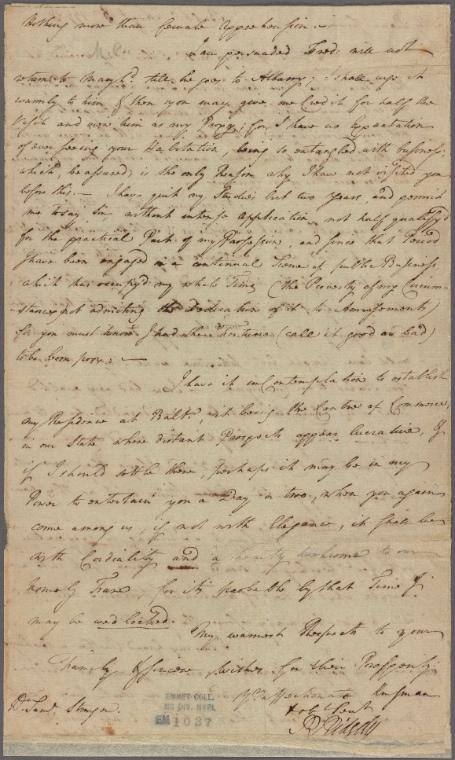 Nothing more than female apprehension. —
I am persuaded Fred. will not
return to Maryld. till he goes to Albany; I shall urge it
warmly to him & then you may give me Credit for half the
Visit and view him as my Proxy; for I have no Expectation
of ever seeing your Habitation, being so entangled with business,
which, be assured, is the only Reason why I have not visited you
before this. — I have quit my Studies but two years, and permit
me to say Sir, without intense Application, not half qualify'd
for the practical Part of my Profession, and since that Period
I have been engaged in a continual Scene of public Business
which has occupy'd my whole Time, (the Poverty of my Circum
stances not admitting the Dedication of it to Amusements)
for you must know I had the Fortune (call it good or bad)
to be born poor. —
I have it in Contemplation to establish
my Residence at Balto., it being the Centre of Commerce
in our State where distant Prospects appear lucrative, &
if I should settle there, perhaps it may be in my
Power to entertain you a Day or two, when you again
come among us, if not with Elegance, it shall be
with Cordiality and a hearty welcome to our
homely Fare, for it's probable by that Time I
may be wedlocked.
My warmest Respects to your
Family & sincere Wishes for their Prosperity
Yr. affectionate Kinsman
& obt. Servt
R Ridgely
Dr. Saml. Stringer
EMMET COLL.
MS DIV. NYPL
EM 1037